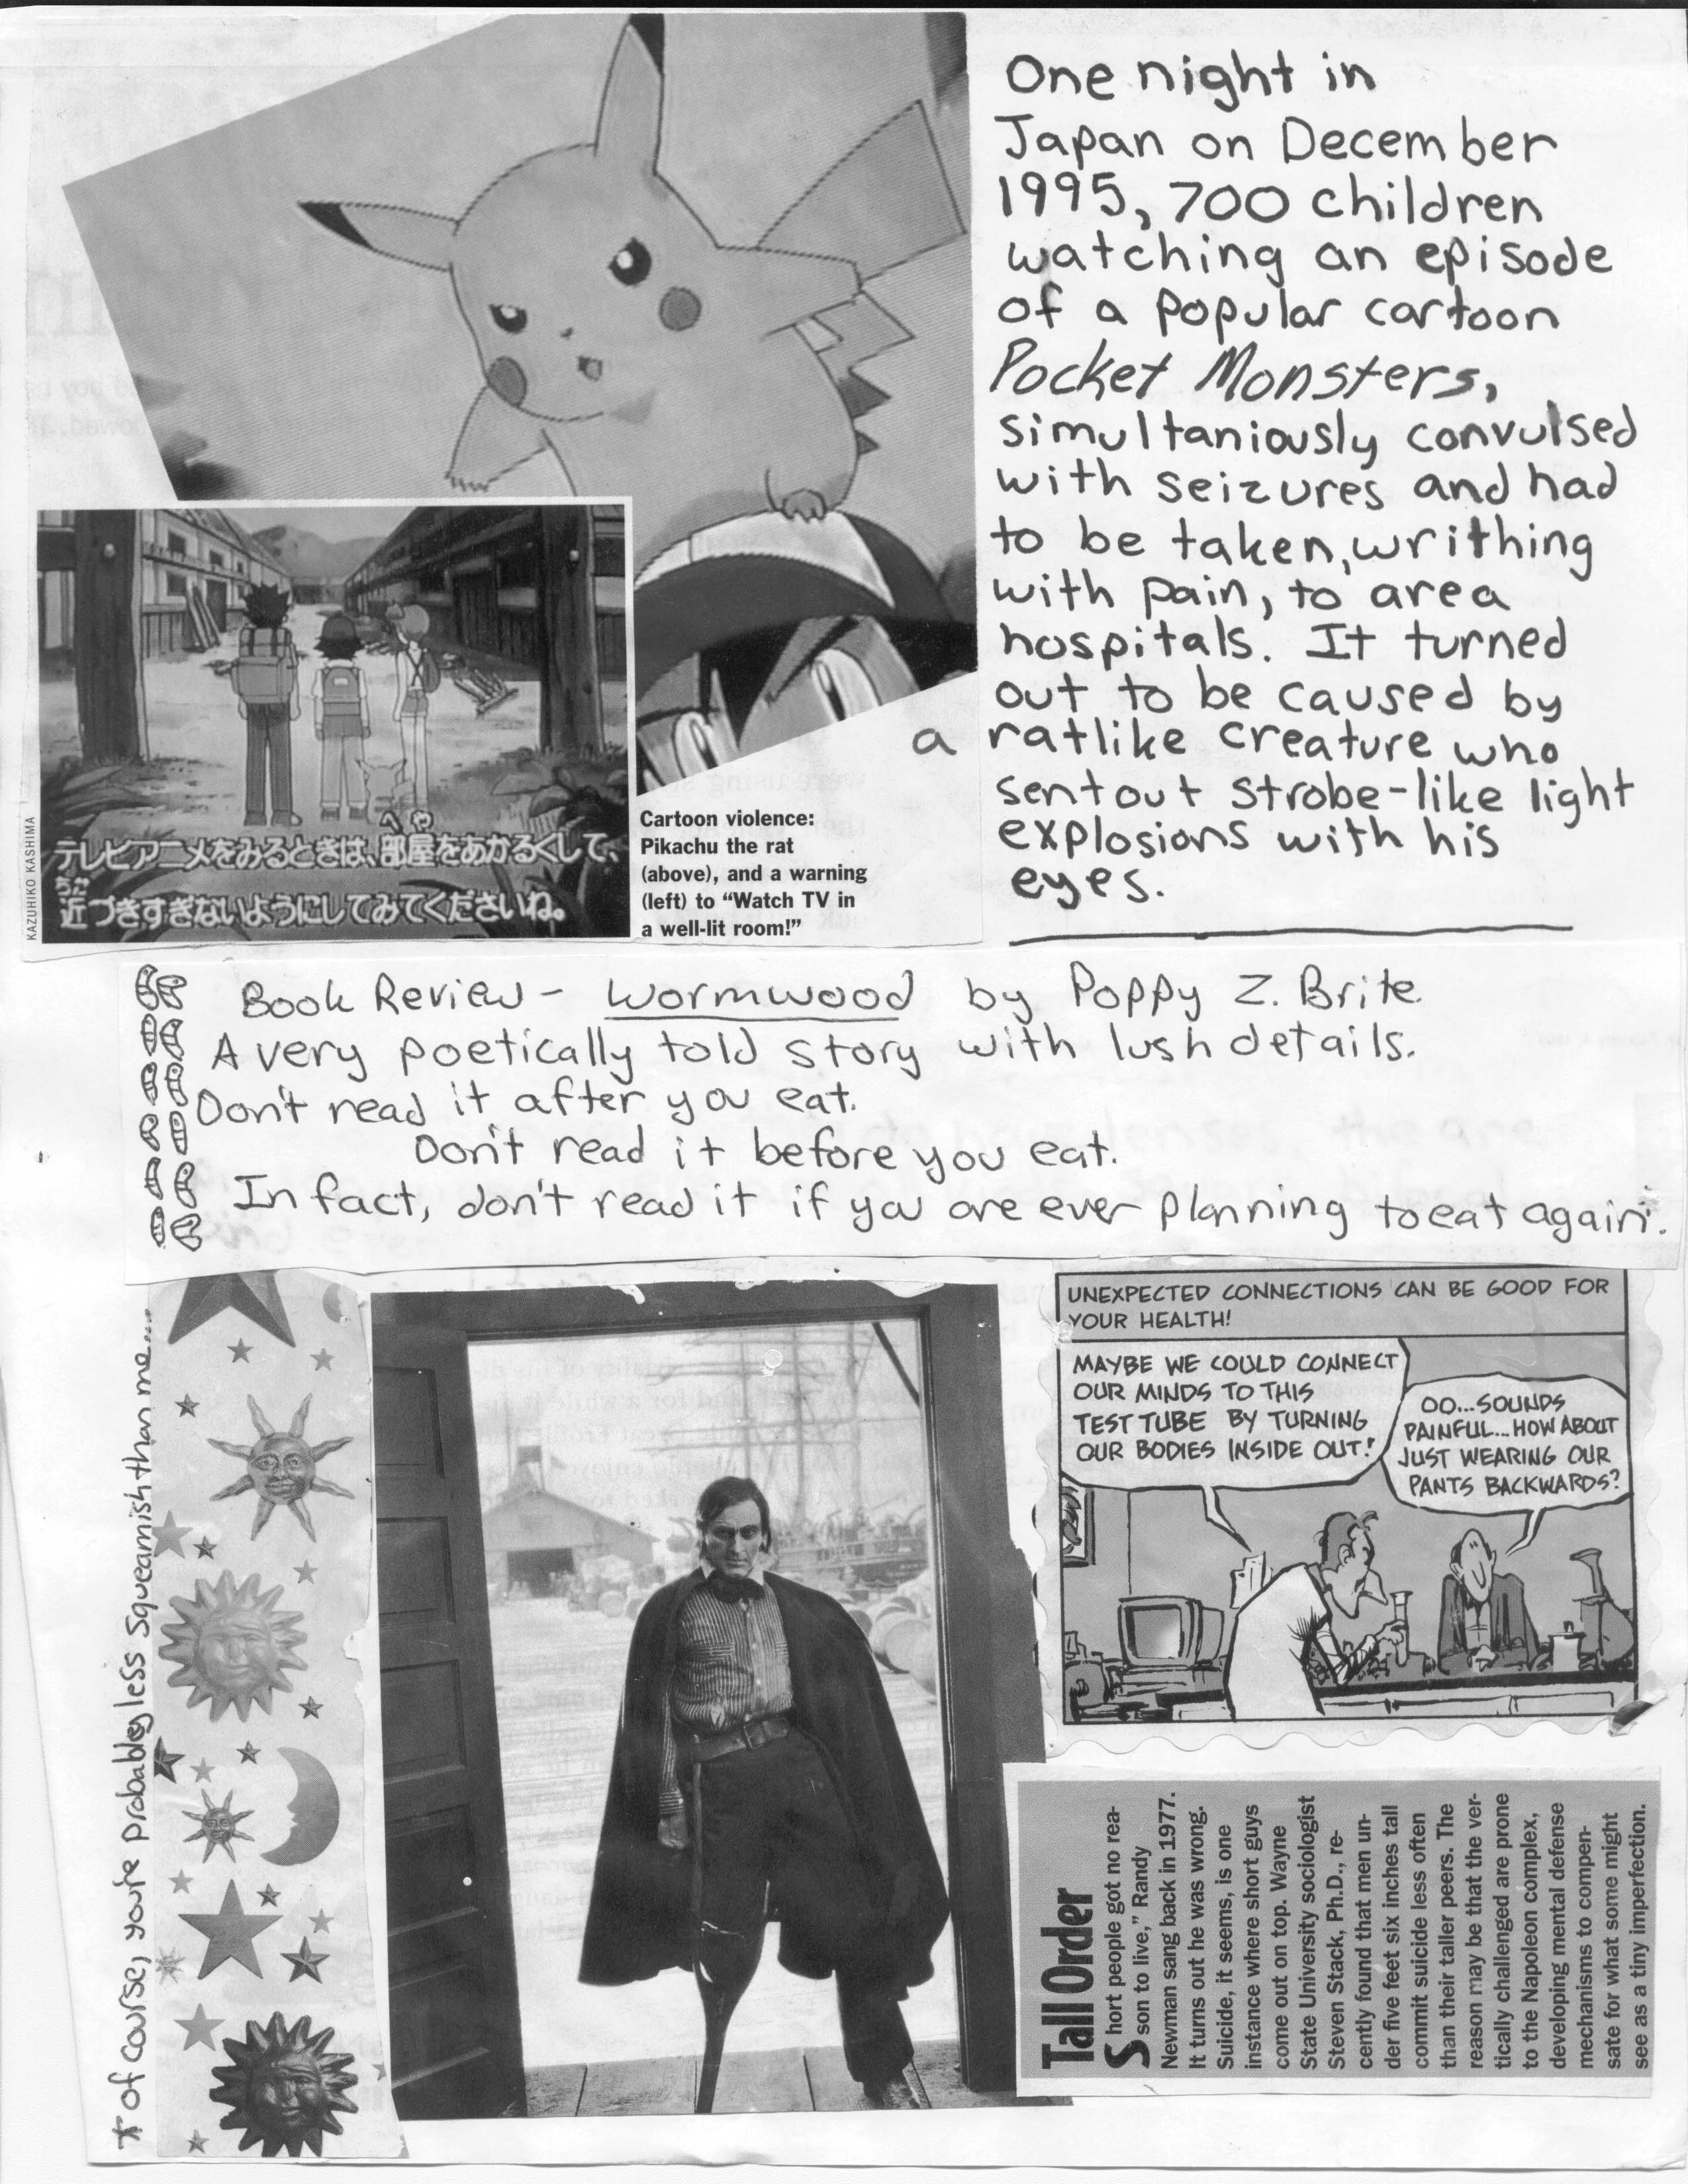 One night in
Japan on December
1995, 700 children
watching an episode
of a popular cartoon
Pocket Monsters,
simultaniously convulsed
with seizures and had
to be taken, writhing
with pain, to area
hospitals. It turned
out to be caused by
a ratlike creature who
sent out strobe-like light
explosions with his
eyes.
KAZUHIKO KASHIMA
へや
テレビアニメをみるときは、部屋をあかるくして、
ちか
近づきすぎないようにしてみてくださいね。
Cartoon violence:
Pikachu the rat
(above), and a warning
(left) to “Watch TV in
a well-lit room!”
Book Review - Wormwood by Poppy Z. Brite.
A very poetically told story with lush details.
Don't read it after you eat.
Don't read it before you eat.
In fact, don't read it if you are ever planning to eat again*.
* of course, you're probably less squeamish than me....
UNEXPECTED CONNECTIONS CAN BE GOOD FOR
YOUR HEALTH!
MAYBE WE COULD CONNECT
OUR MINDS TO THIS
TEST TUBE BY TURNING
OUR BODIES INSIDE OUT!
OO...SOUNDS
PAINFUL...HOW ABOUT
JUST WEARING OUR
PANTS BACKWARDS?
Tall Order
Short people got no rea-
son to live,” Randy
Newman sang back in 1977.
It turns out he was wrong.
Suicide, it seems, is one
instance where short guys
come out on top. Wayne
State University sociologist
Steven Stack, Ph.D., re-
cently found that men un-
der five feet six inches tall
commit suicide less often
than their taller peers. The
reason may be that the ver-
tically challenged are prone
to the Napoleon complex,
developing mental defense
mechanisms to compen-
sate for what some might
see as a tiny imperfection.